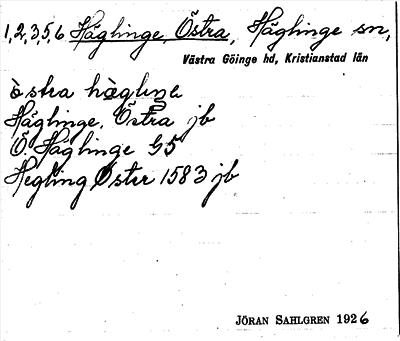 1,2,3,5,6 Häglinge, Östra, Häglinge sn,
Västra Göinge hd, Kristianstad län
östra häglinge
Häglinge, Östra jb
Ö. Häglinge G5
Hegling Öster 1583 jb
JÖRAN SAHLGREN 1926